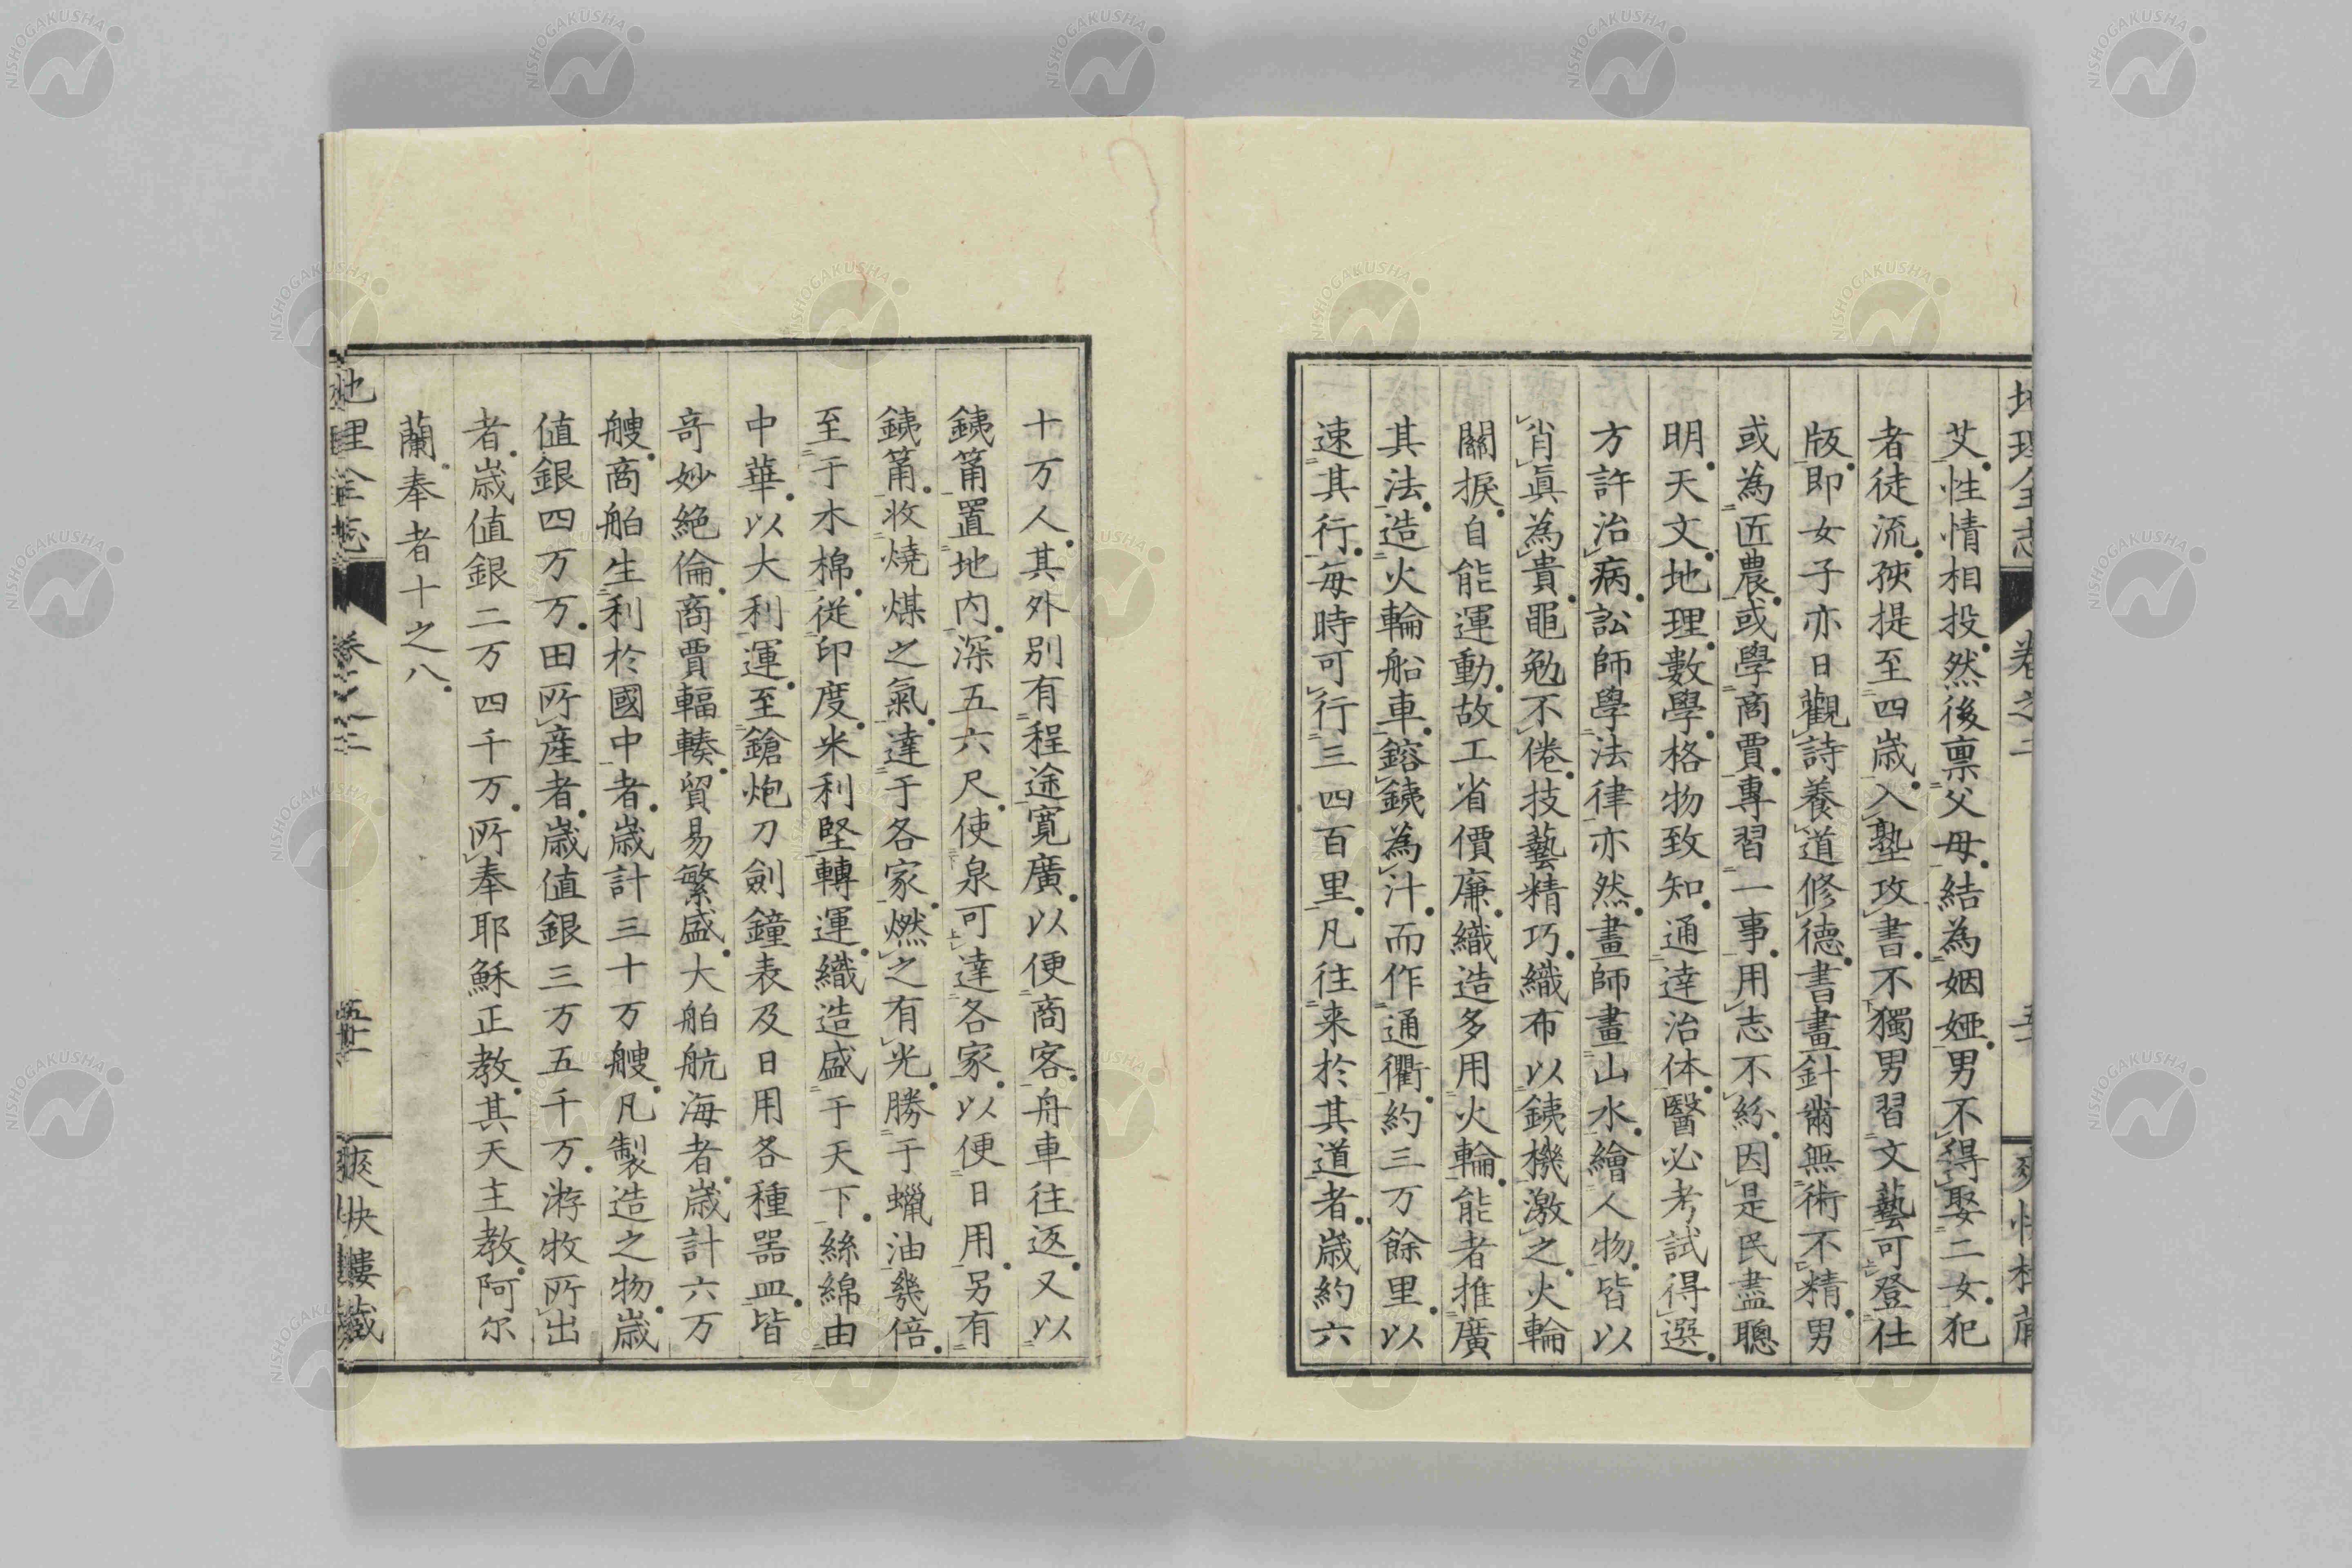 地理全志 卷之二
艾性情相投然後禀父母結為姻婭男不得娶二女犯
者徒流孩提至四歳入塾攻書不獨男習文藝可登仕
版即女子亦日觀詩養道修德書畫針黹無術不精男
或為匠農或學商賈專習一事用志不紛因是民盡聰
明天文地理數學格物致知通達治体醫必考試得選
方許治病訟師學法律亦然畫師畫山水繪人物皆以
肖眞為貴黽勉不倦技藝精巧織布以銕機激之火輪
關捩自能運動故工省價廉織造多用火輪能者推廣
其法造火輪船車鎔銕為汁而作通衢約三万餘里以
速其行每時可行三四百里凡往来於其道者歳約六
十万人其外別有程途寛廣以便商客舟車往返又以
銕筩置地内深五六尺使泉可達各家以便日用另有
銕筩收燒煤之氣達于各家燃之有光勝于蠟油幾倍
至于木棉從印度米利堅轉運織造盛于天下絲綿由
中華以大利運至鎗炮刀劍鐘表及日用各種噐皿皆
奇妙絶倫商賈輻輳貿易繁盛大舶航海者歳計六万
艘商舶生利於國中者歳計三十万艘凡製造之物歳
値銀四万万田所産者歳値銀三万五千万游牧所出
者歳値銀二万四千万所奉耶穌正教其天主教阿尔
蘭奉者十之八
地理全志 卷之二 爽快樓藏
NISHOGAKUSHA